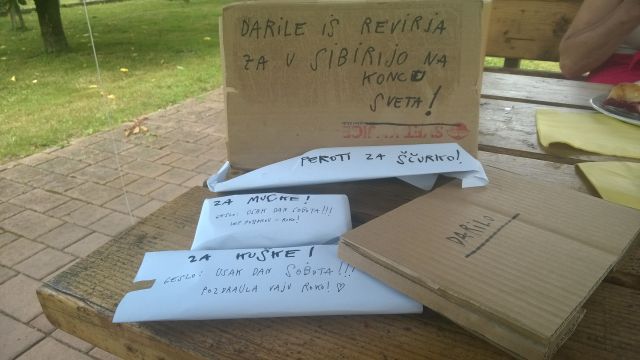 DARILO IŠ REVIRJA
ZA V SIBIRIJO NA
KONCU
SVETA!
SVET KNJIGE
PEROTI ZA ŠČURKO!
ZA MUCKE!
GESLO: USAK DAN SOBOTA!!!
LEP POZDRAV - ROKO!
ZA KUŠKE!
GESLO: USAK DAN SOBOTA!!!
POZDRAULA VAJU ROKO! ♡
DARILO